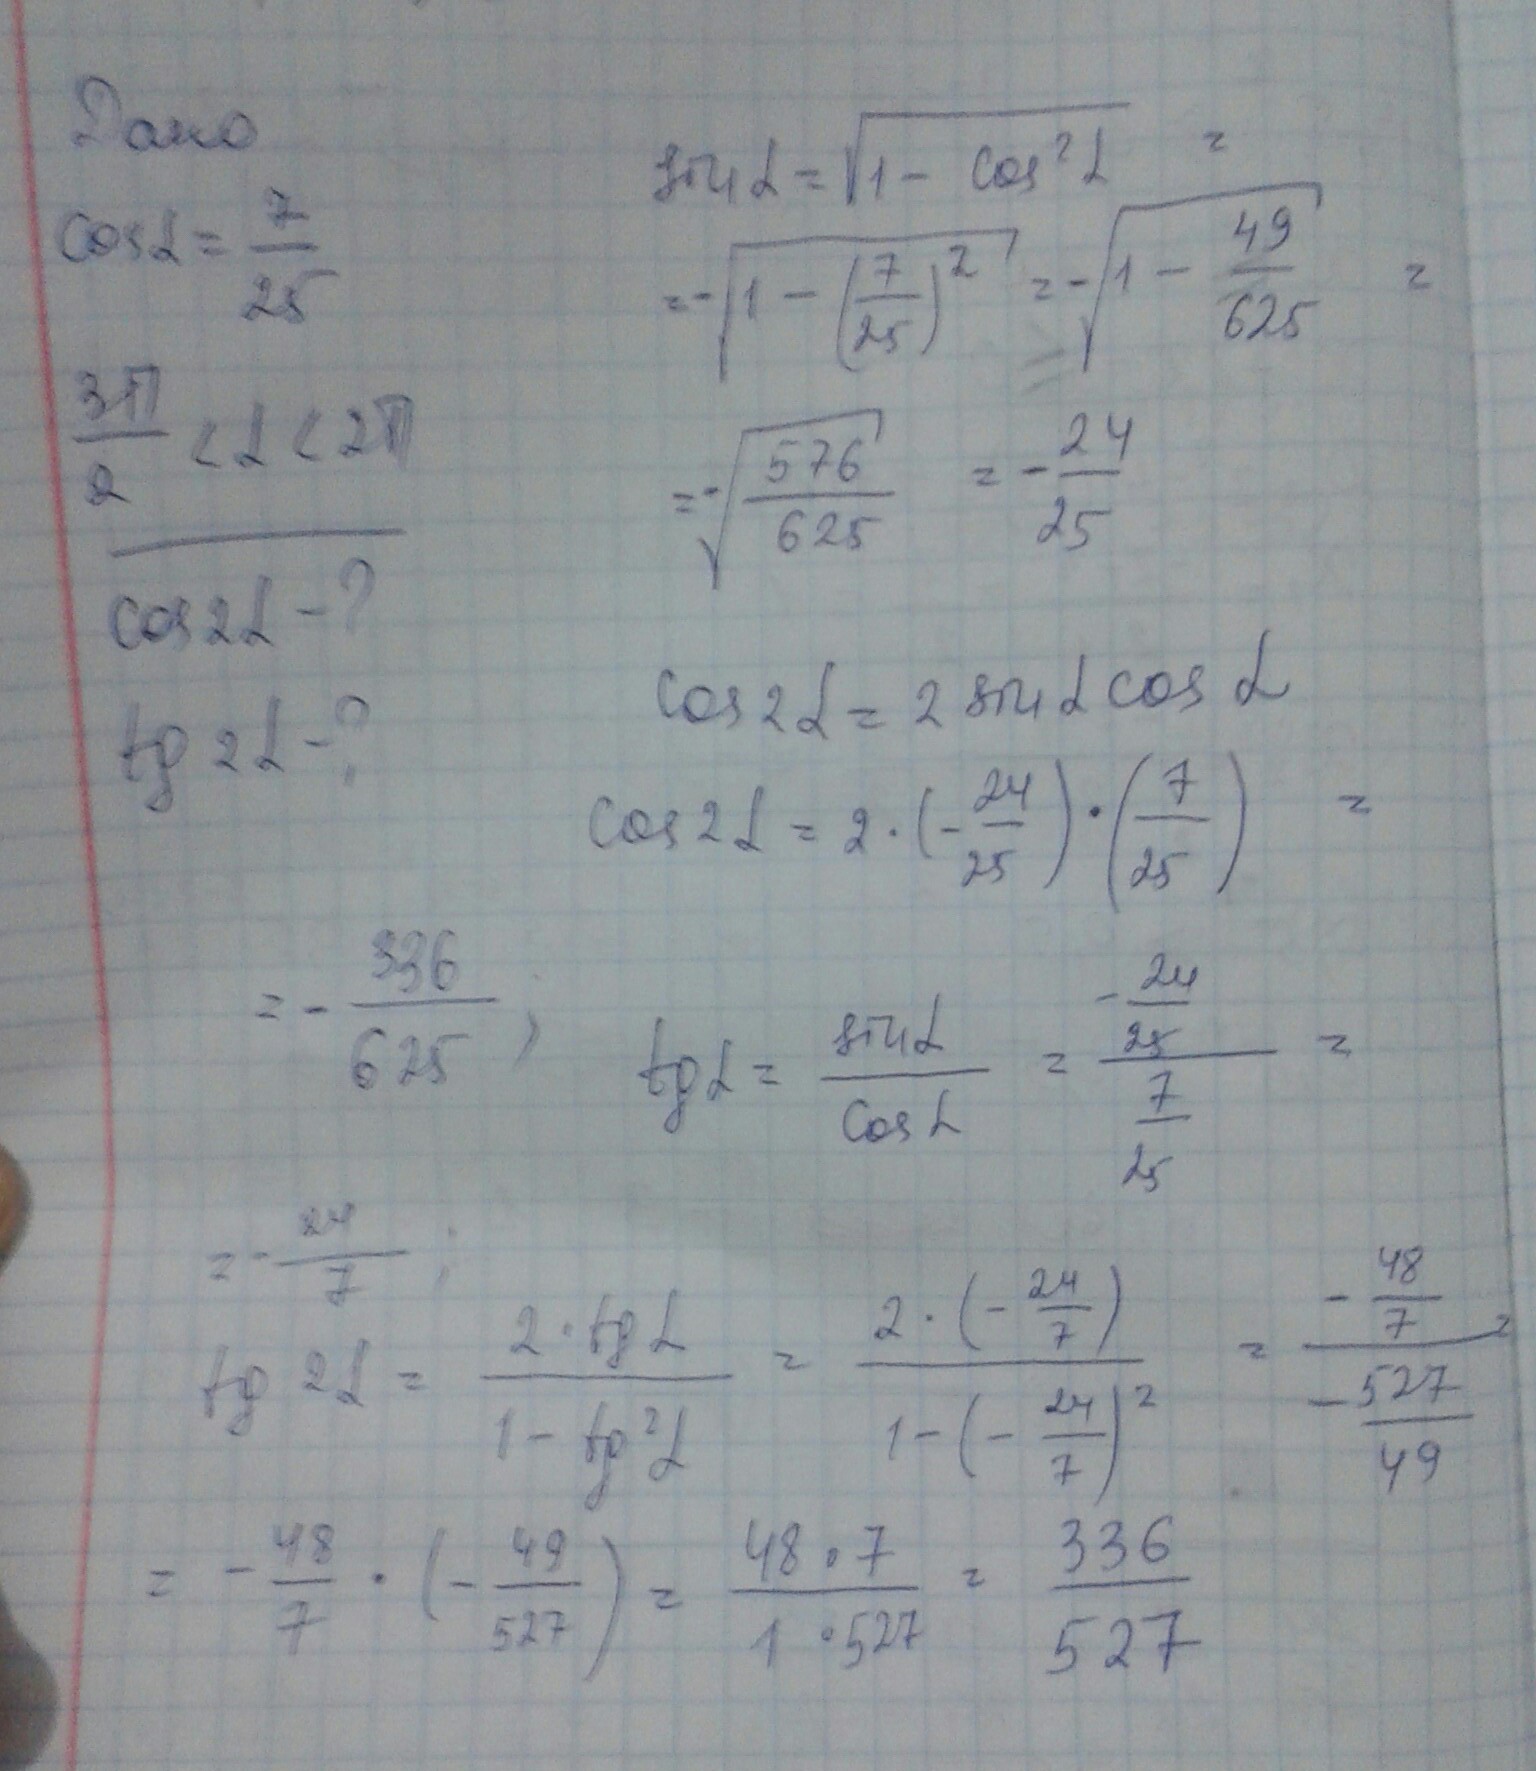 Дано
cos α = 7/25
3π/2 < α < 2π
cos 2α - ?
tg 2α - ?
sin α = √(1 - cos² α) =
= -√(1 - (7/25)²) = -√(1 - 49/625) =
= -√(576/625) = -24/25
cos 2α = 2 sin α cos α
cos 2α = 2 · (-24/25) · (7/25) =
= -336/625 ;
tg α = sin α / cos α = (-24/25) / (7/25) =
= -24/7 ;
tg 2α = (2 · tg α) / (1 - tg² α) = (2 · (-24/7)) / (1 - (-24/7)²) = (-48/7) / (-527/49) =
= -48/7 · (-49/527) = (48 · 7) / (1 · 527) = 336/527